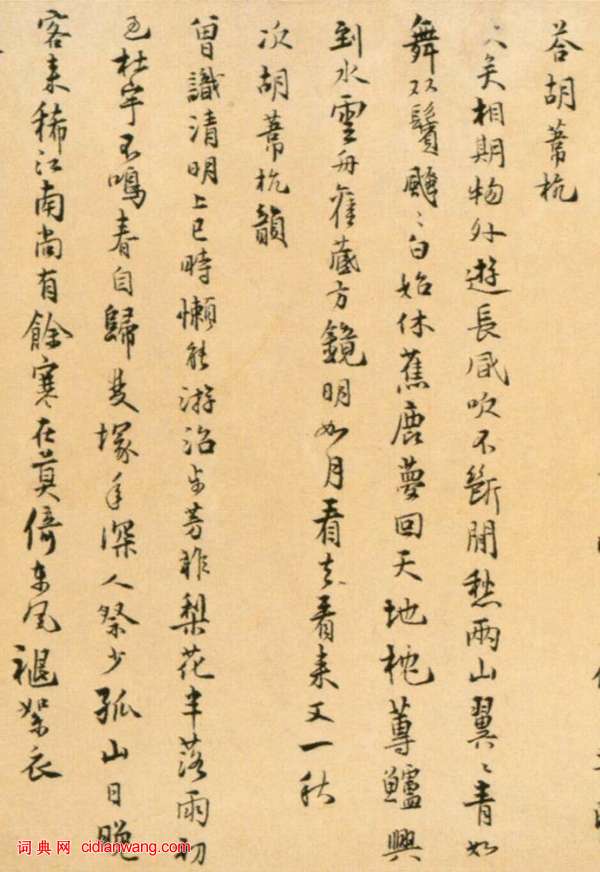 荅胡葦杭
矣相期物外遊長風吹不斷閒愁兩山翼〻青如
舞双鬢颼〻白始休蕉鹿夢回天地枕蓴鱸興
到水雲舟舊藏方鏡明如月看去看来又一秋
次胡葦杭韻
曾識清明上巳時懶能游冶步芳菲梨花半落雨初
過杜宇不鳴春自歸双塚年深人祭少孤山日晚
客来稀江南尚有餘寒在莫倚東風褪絮衣
词典网 cidianwang.com